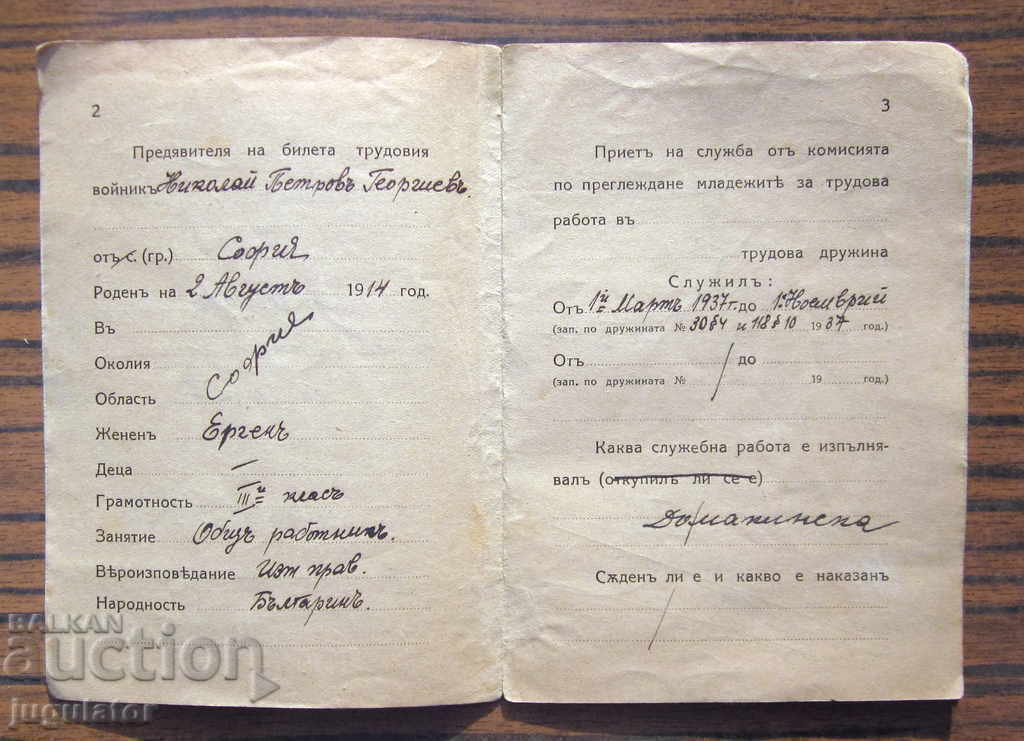 2
Предявителя на билета трудовия
войникъ Николай Петровъ Георгиевъ.
отъ с. (гр.) София
Роденъ на 2 Августъ 1914 год.
Въ
Околия София
Область
Жененъ Ергенъ
Деца —
Грамотность III и класъ
Занятие Общъ работникъ.
Вѣроизповѣдание Изт. прав.
Народность Българинъ.
3
Приетъ на служба отъ комисията
по преглеждане младежитѣ за трудова
работа въ
трудова дружина
Служилъ:
Отъ 1й Мартъ 1937 г. до 1. Ноемврий
(зап. по дружината № 30 § 4 и 118 § 10 1937 год.)
Отъ / до
(зап. по дружината № 19 год.)
Каква служебна работа е изпълня-
валъ (откупилъ ли се е)
Домакинска
Сѫденъ ли е и какво е наказанъ
/
BALKAN
auction
jugulator